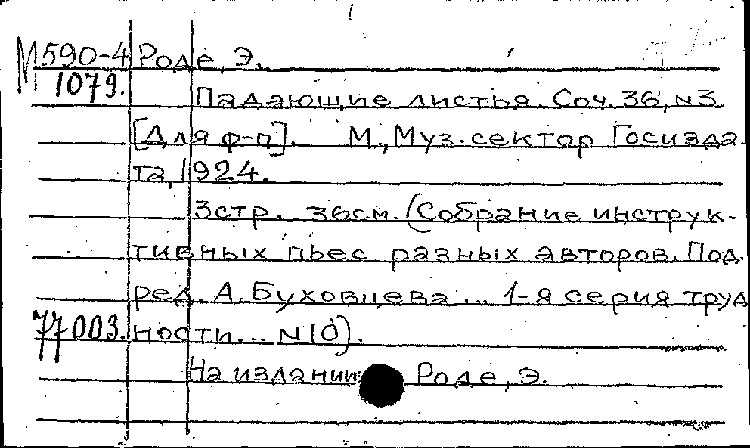 М590-4 Роде, Э.
1079.
Падающие листья. Соч. 36, N3.
[Для ф-п]. М., Муз. сектор Госизда-
та, 1924.
3стр. 36см. (Собрание инструк-
тивных пьес разных авторов. Под
ред. А. Буховцева... 1-я серия труд
77003. ности... N10).
На издании: Роде, Э.